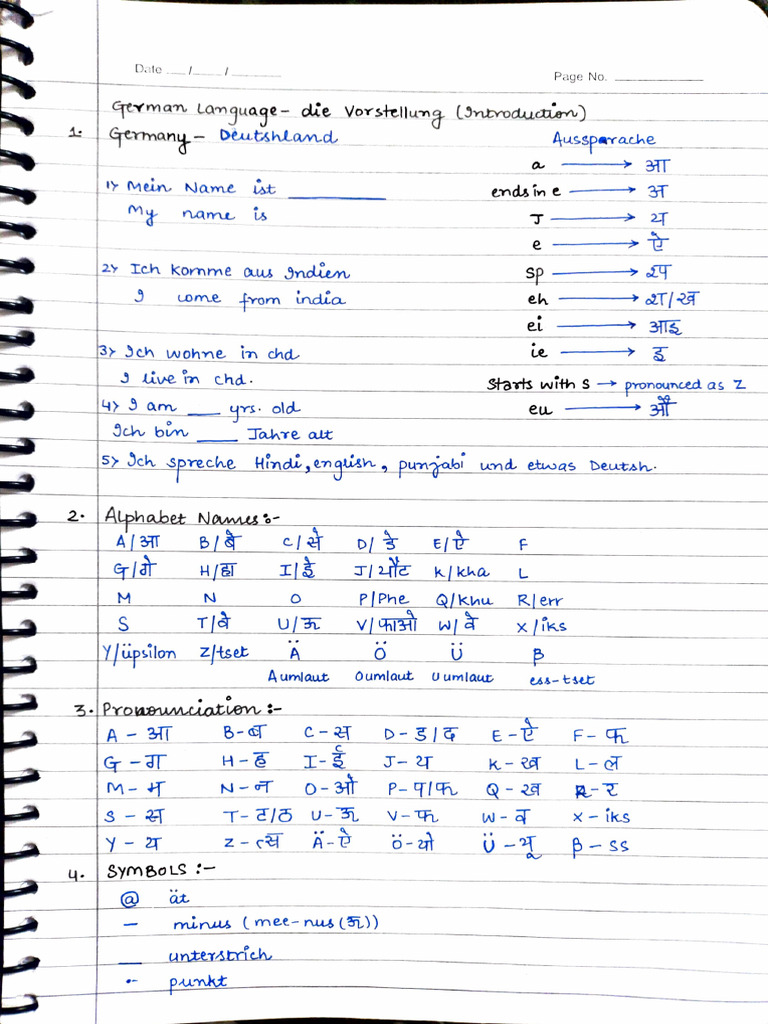 Date ___/___/______
Page No. __________
German Language - die Vorstellung (Introduction)
1. Germany - Deutshland
Aussparache
a → आ
1) Mein Name ist ______
ends in e → अ
My name is
J → य
e → ऐ
2) Ich komme aus Indien
sp → श्प
I come from india
eh → श/ख
ei → आइ
3) Ich wohne in chd
ie → इ
I live in chd.
Starts with s → pronounced as Z
4) I am ___ yrs. old
eu → औ
Ich bin ___ Jahre alt
5) Ich spreche Hindi, english, punjabi und etwas Deutsh.
2. Alphabet Names:-
A/आ B/बे C/से D/डे E/ऐ F
G/गे H/हा I/ई J/यौट K/kha L
M N O P/Phe Q/khu R/err
S T/टे U/ऊ V/फाओ W/वे X/iks
Y/üpsilon Z/tset Ä Ö Ü β
A umlaut O umlaut U umlaut ess-tset
3. Pronounciation :-
A - आ B - ब C - स D - ड/द E - ऐ F - फ
G - ग H - ह I - ई J - य K - ख L - ल
M - म N - न O - ओ P - प/फ Q - ख R - र
S - स T - ट/ठ U - ऊ V - फ W - व X - iks
Y - य Z - त्स Ä - ऐ Ö - यो Ü - यू β - ss
4. SYMBOLS :-
@ ät
— minus (mee-nus(ऊ))
__ unterstrich
•- punkt